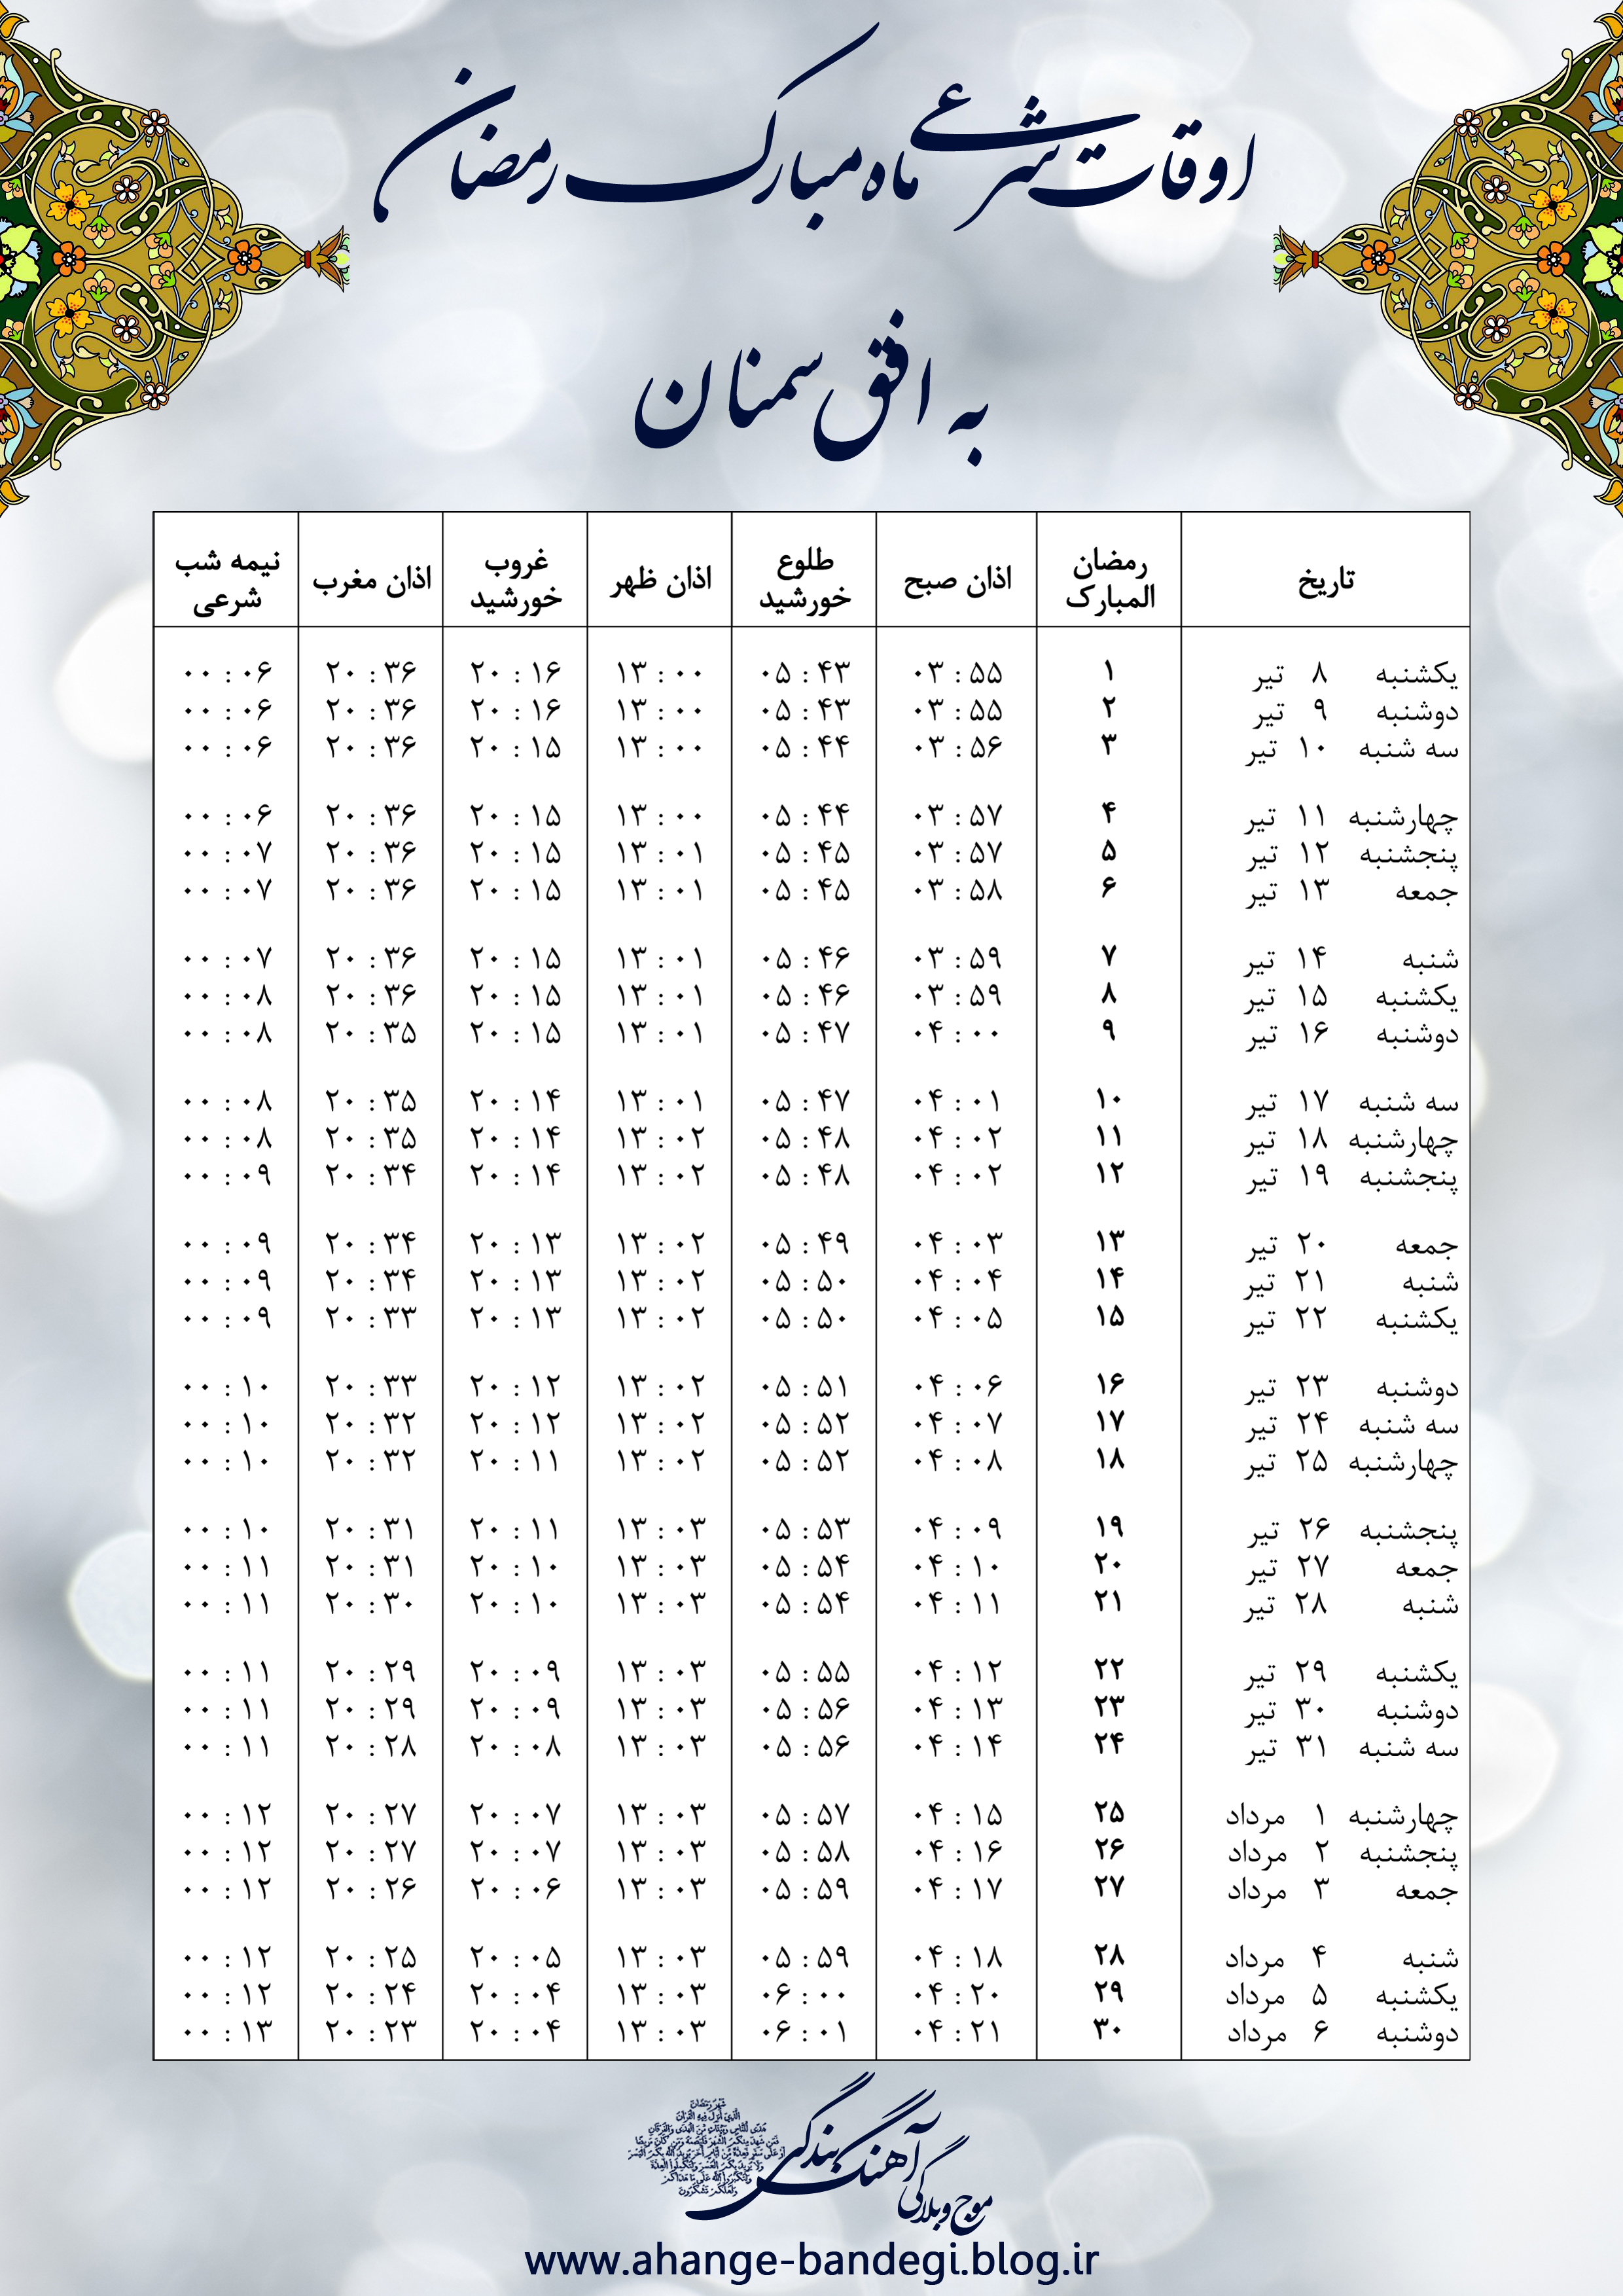 اوقات شرعی ماه مبارک رمضان
به افق سمنان
تاریخ رمضان المبارک اذان صبح طلوع خورشید اذان ظهر غروب خورشید اذان مغرب نیمه شب شرعی
یکشنبه ۸ تیر ۱ ۰۳:۵۵ ۰۵:۴۳ ۱۳:۰۰ ۲۰:۱۶ ۲۰:۳۶ ۰۰:۰۶
دوشنبه ۹ تیر ۲ ۰۳:۵۵ ۰۵:۴۳ ۱۳:۰۰ ۲۰:۱۶ ۲۰:۳۶ ۰۰:۰۶
سه شنبه ۱۰ تیر ۳ ۰۳:۵۶ ۰۵:۴۴ ۱۳:۰۰ ۲۰:۱۵ ۲۰:۳۶ ۰۰:۰۶
چهارشنبه ۱۱ تیر ۴ ۰۳:۵۷ ۰۵:۴۴ ۱۳:۰۰ ۲۰:۱۵ ۲۰:۳۶ ۰۰:۰۶
پنجشنبه ۱۲ تیر ۵ ۰۳:۵۷ ۰۵:۴۵ ۱۳:۰۱ ۲۰:۱۵ ۲۰:۳۶ ۰۰:۰۷
جمعه ۱۳ تیر ۶ ۰۳:۵۸ ۰۵:۴۵ ۱۳:۰۱ ۲۰:۱۵ ۲۰:۳۶ ۰۰:۰۷
شنبه ۱۴ تیر ۷ ۰۳:۵۹ ۰۵:۴۶ ۱۳:۰۱ ۲۰:۱۵ ۲۰:۳۶ ۰۰:۰۷
یکشنبه ۱۵ تیر ۸ ۰۳:۵۹ ۰۵:۴۶ ۱۳:۰۱ ۲۰:۱۵ ۲۰:۳۶ ۰۰:۰۸
دوشنبه ۱۶ تیر ۹ ۰۴:۰۰ ۰۵:۴۷ ۱۳:۰۱ ۲۰:۱۵ ۲۰:۳۵ ۰۰:۰۸
سه شنبه ۱۷ تیر ۱۰ ۰۴:۰۱ ۰۵:۴۷ ۱۳:۰۱ ۲۰:۱۴ ۲۰:۳۵ ۰۰:۰۸
چهارشنبه ۱۸ تیر ۱۱ ۰۴:۰۲ ۰۵:۴۸ ۱۳:۰۲ ۲۰:۱۴ ۲۰:۳۵ ۰۰:۰۸
پنجشنبه ۱۹ تیر ۱۲ ۰۴:۰۲ ۰۵:۴۸ ۱۳:۰۲ ۲۰:۱۴ ۲۰:۳۴ ۰۰:۰۹
جمعه ۲۰ تیر ۱۳ ۰۴:۰۳ ۰۵:۴۹ ۱۳:۰۲ ۲۰:۱۳ ۲۰:۳۴ ۰۰:۰۹
شنبه ۲۱ تیر ۱۴ ۰۴:۰۴ ۰۵:۵۰ ۱۳:۰۲ ۲۰:۱۳ ۲۰:۳۴ ۰۰:۰۹
یکشنبه ۲۲ تیر ۱۵ ۰۴:۰۵ ۰۵:۵۰ ۱۳:۰۲ ۲۰:۱۳ ۲۰:۳۳ ۰۰:۰۹
دوشنبه ۲۳ تیر ۱۶ ۰۴:۰۶ ۰۵:۵۱ ۱۳:۰۲ ۲۰:۱۲ ۲۰:۳۳ ۰۰:۱۰
سه شنبه ۲۴ تیر ۱۷ ۰۴:۰۷ ۰۵:۵۲ ۱۳:۰۲ ۲۰:۱۲ ۲۰:۳۲ ۰۰:۱۰
چهارشنبه ۲۵ تیر ۱۸ ۰۴:۰۸ ۰۵:۵۲ ۱۳:۰۲ ۲۰:۱۱ ۲۰:۳۲ ۰۰:۱۰
پنجشنبه ۲۶ تیر ۱۹ ۰۴:۰۹ ۰۵:۵۳ ۱۳:۰۳ ۲۰:۱۱ ۲۰:۳۱ ۰۰:۱۰
جمعه ۲۷ تیر ۲۰ ۰۴:۱۰ ۰۵:۵۴ ۱۳:۰۳ ۲۰:۱۰ ۲۰:۳۱ ۰۰:۱۱
شنبه ۲۸ تیر ۲۱ ۰۴:۱۱ ۰۵:۵۴ ۱۳:۰۳ ۲۰:۱۰ ۲۰:۳۰ ۰۰:۱۱
یکشنبه ۲۹ تیر ۲۲ ۰۴:۱۲ ۰۵:۵۵ ۱۳:۰۳ ۲۰:۰۹ ۲۰:۲۹ ۰۰:۱۱
دوشنبه ۳۰ تیر ۲۳ ۰۴:۱۳ ۰۵:۵۶ ۱۳:۰۳ ۲۰:۰۹ ۲۰:۲۹ ۰۰:۱۱
سه شنبه ۳۱ تیر ۲۴ ۰۴:۱۴ ۰۵:۵۶ ۱۳:۰۳ ۲۰:۰۸ ۲۰:۲۸ ۰۰:۱۱
چهارشنبه ۱ مرداد ۲۵ ۰۴:۱۵ ۰۵:۵۷ ۱۳:۰۳ ۲۰:۰۷ ۲۰:۲۷ ۰۰:۱۲
پنجشنبه ۲ مرداد ۲۶ ۰۴:۱۶ ۰۵:۵۸ ۱۳:۰۳ ۲۰:۰۷ ۲۰:۲۷ ۰۰:۱۲
جمعه ۳ مرداد ۲۷ ۰۴:۱۷ ۰۵:۵۹ ۱۳:۰۳ ۲۰:۰۶ ۲۰:۲۶ ۰۰:۱۲
شنبه ۴ مرداد ۲۸ ۰۴:۱۸ ۰۵:۵۹ ۱۳:۰۳ ۲۰:۰۵ ۲۰:۲۵ ۰۰:۱۲
یکشنبه ۵ مرداد ۲۹ ۰۴:۲۰ ۰۶:۰۰ ۱۳:۰۳ ۲۰:۰۴ ۲۰:۲۴ ۰۰:۱۲
دوشنبه ۶ مرداد ۳۰ ۰۴:۲۱ ۰۶:۰۱ ۱۳:۰۳ ۲۰:۰۴ ۲۰:۲۳ ۰۰:۱۳
موج وبلاگی آهنگ بندگی
www.ahange-bandegi.blog.ir